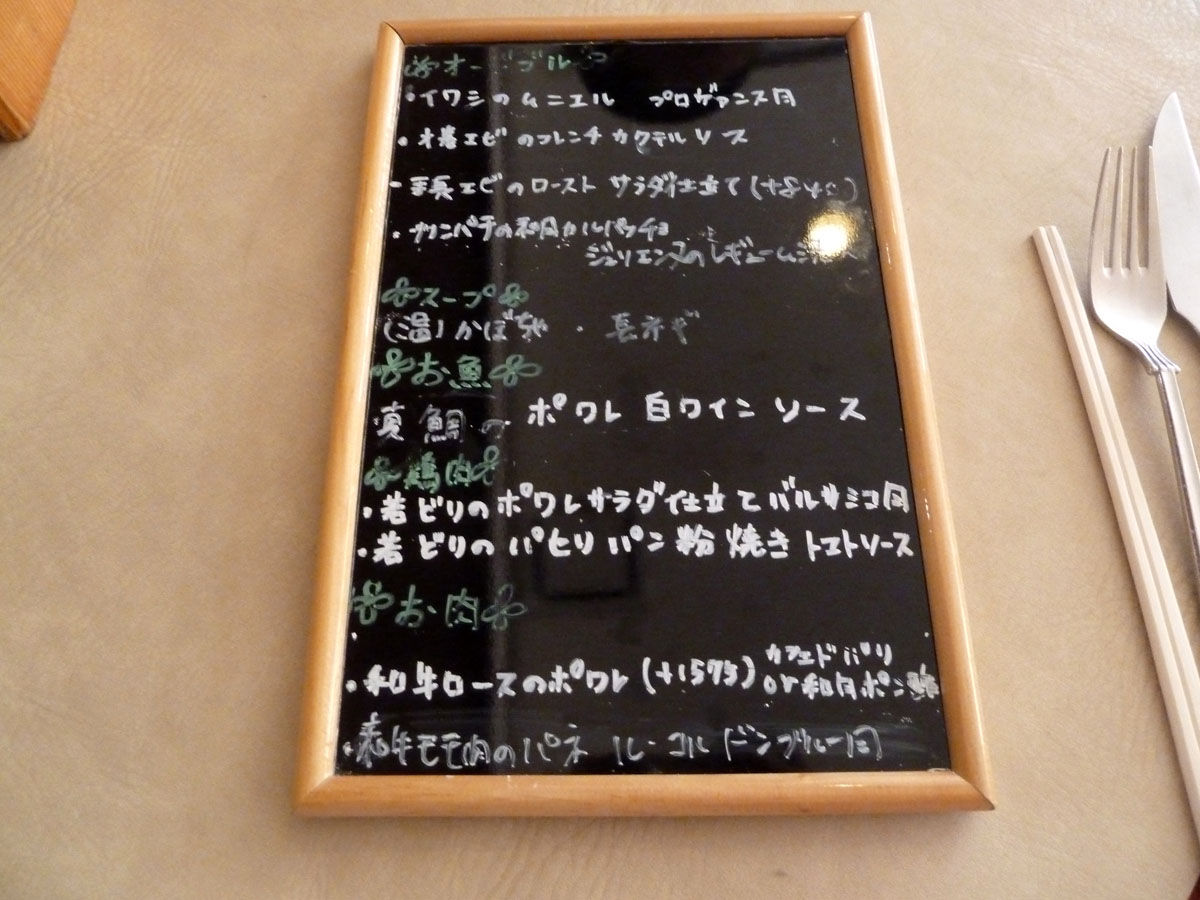 オードブル
・イワシのムニエル プロヴァンス風
・エビのフレンチカクテルソース
・エビのロースト サラダ仕立て(+840)
・カンパチの和風カルパッチョ
ジュリエンヌのレギューム
スープ
(温)かぼちゃ ・ 長ネギ
お魚
真鯛のポワレ 白ワインソース
鶏肉
・若どりのポワレサラダ仕立てバルサミコ風
・若どりのパセリパン粉焼きトマトソース
お肉
・和牛ロースのポワレ (+1575) カフェドパリ
or和風ポン酢
・和牛モモ肉のパネ ル・コルドンブルー風